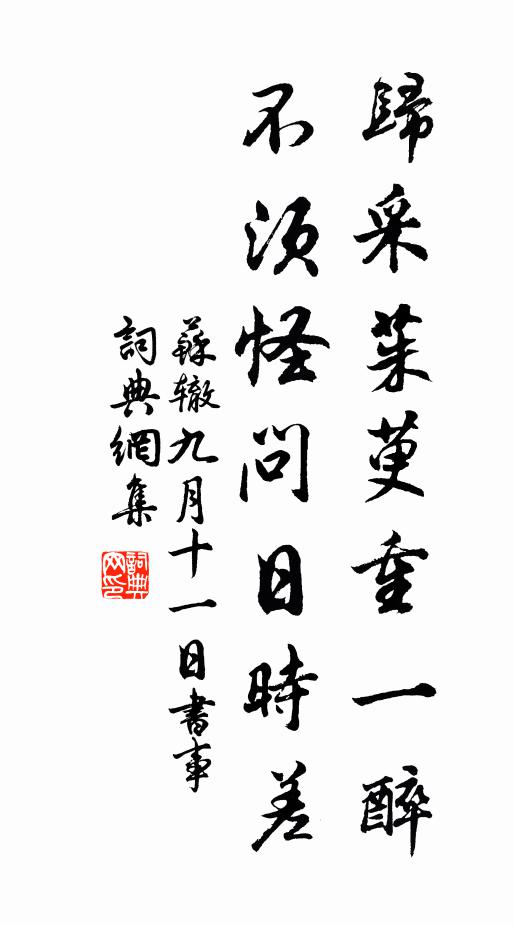 歸采茱萸重一醉
不須怪問日時差
蘇辙九月十一日書事
詞典網集
詞典网印